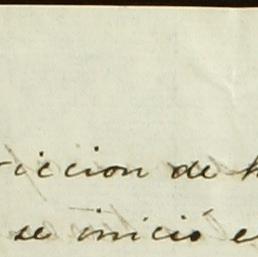 iccion de
se inició e